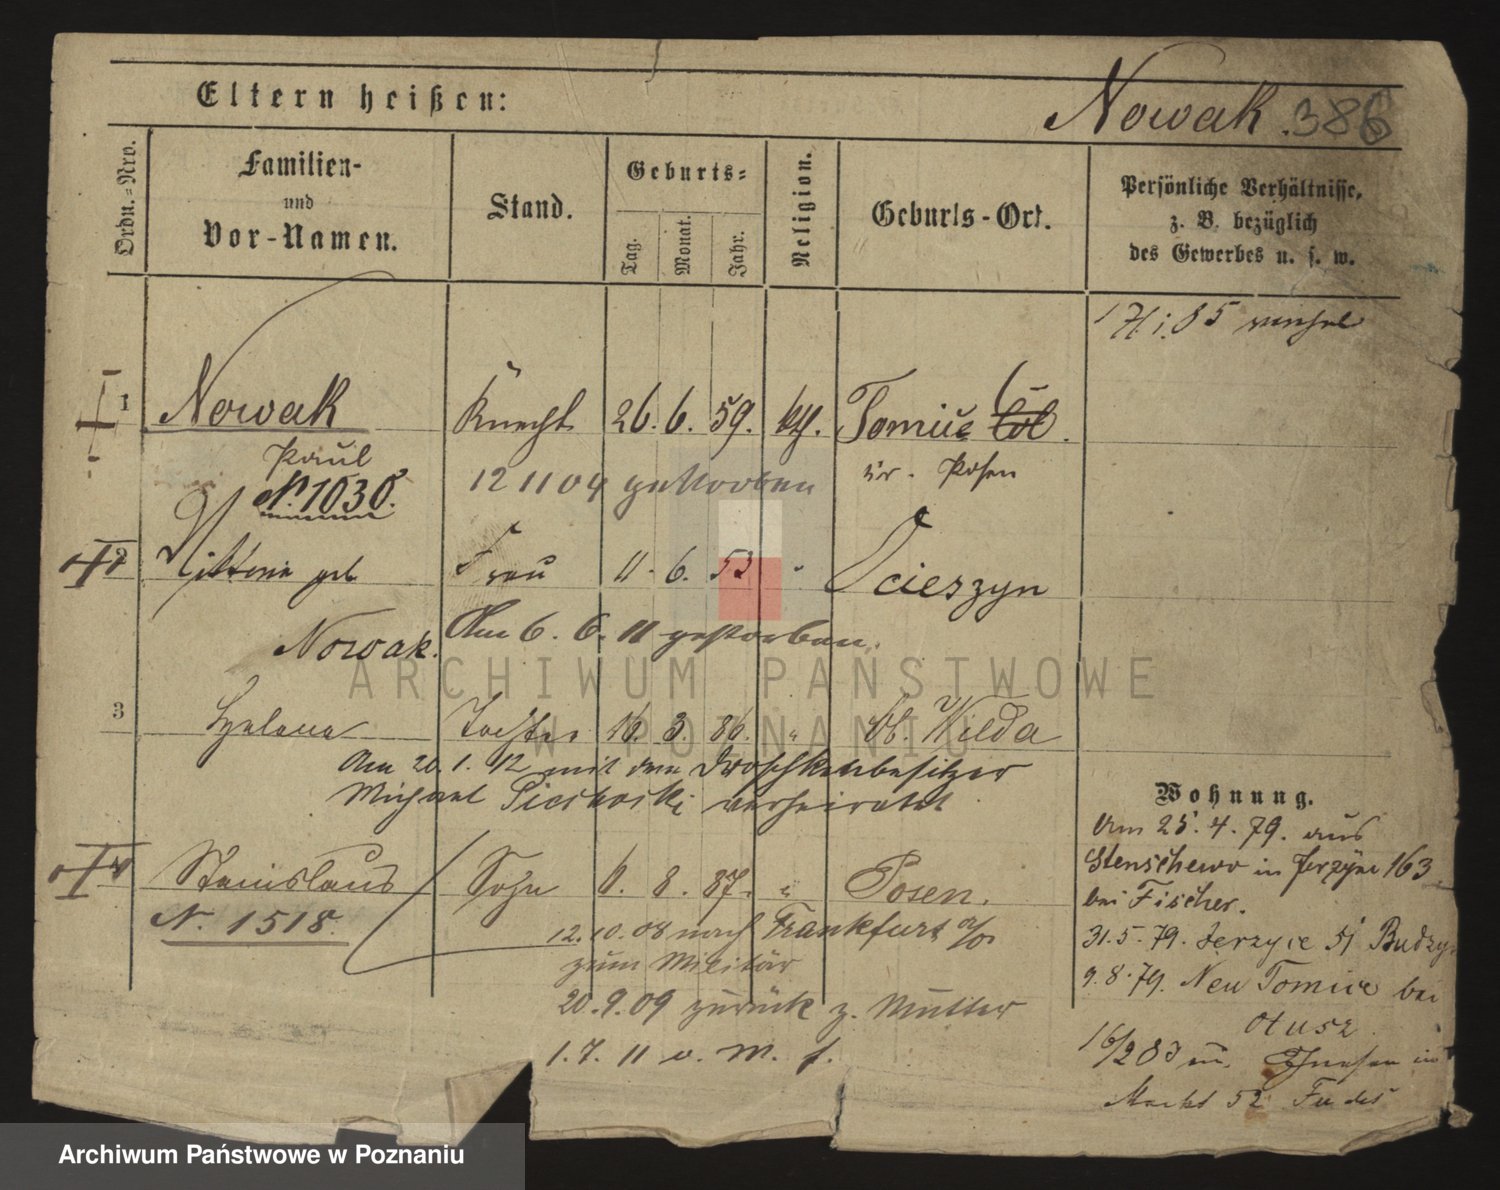 Eltern heißen:
Nowak. 386
Ordn.-Nro.
Familien-
und
Vor-Namen.
Stand.
Geburts-
Tag.
Monat.
Jahr.
Religion.
Geburts-Ort.
Persönliche Verhältnisse,
z. B. bezüglich
des Gewerbes u. s. w.
1 Nowak Knecht 26. 6. 59. kth. Tomice
Paul
Kr. Posen
N. 1030. 12 11 04 gestorben
2 geb Frau 11. 6. 53 " Scieszyn
Nowak. Am 6. 6. 11 gestorben.
3 Helena Tochter 16. 3. 86. " Ob. Wilda
Am 20. 1. 12 mit dem Droschkenbesitzer
Michael verheiratet
4 Stanislaus Sohn 6. 8. 87. " Posen.
N. 1518.
12. 10. 08 nach Frankfurt a/O
zum Militär
20. 9. 09 zurück z. Mutter
1. 7. 11 v. M. f.
Wohnung.
Am 25. 4. 79. aus
Stenschewo in Jerzyce 163
bei Fischer.
31. 5. 79. Jerzyce 51
9. 8. 79. Neu Tomice bei
Otusz
Gnesen in
Markt 52
ARCHIWUM PAŃSTWOWE
W POZNANIU
Archiwum Państwowe w Poznaniu